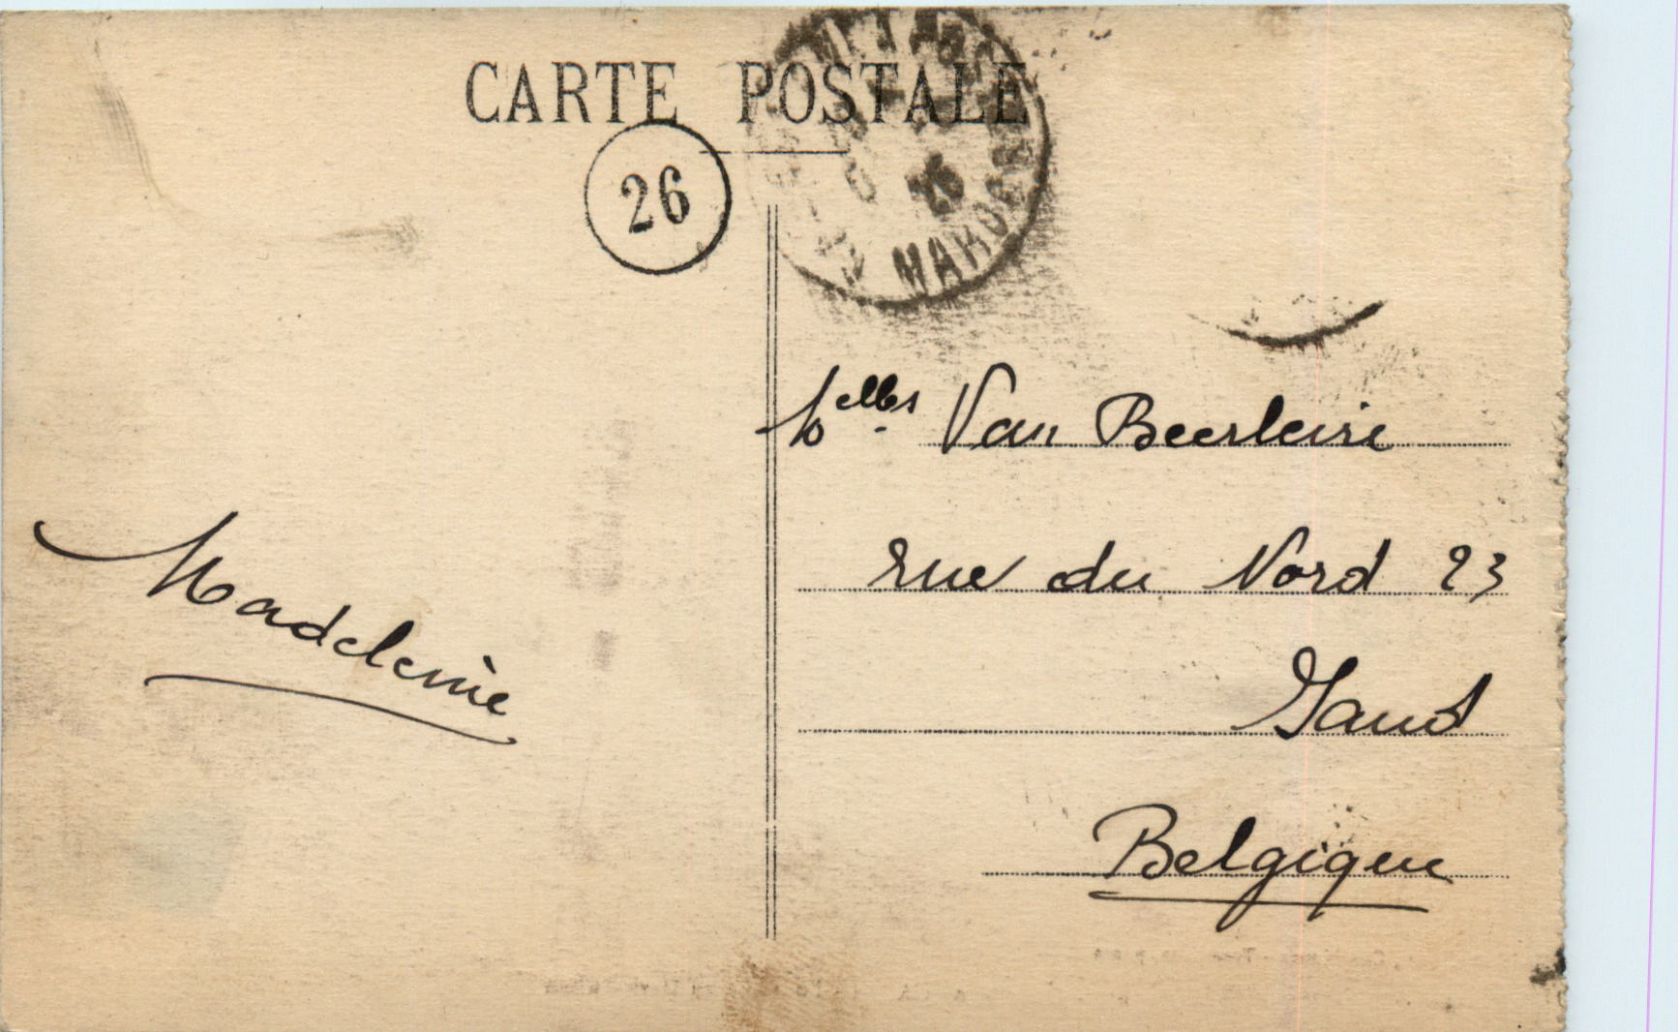 CARTE POSTALE
26
MAROC
Melles Van Beerleire
rue du Nord 23
Gand
Belgique
Madeleine